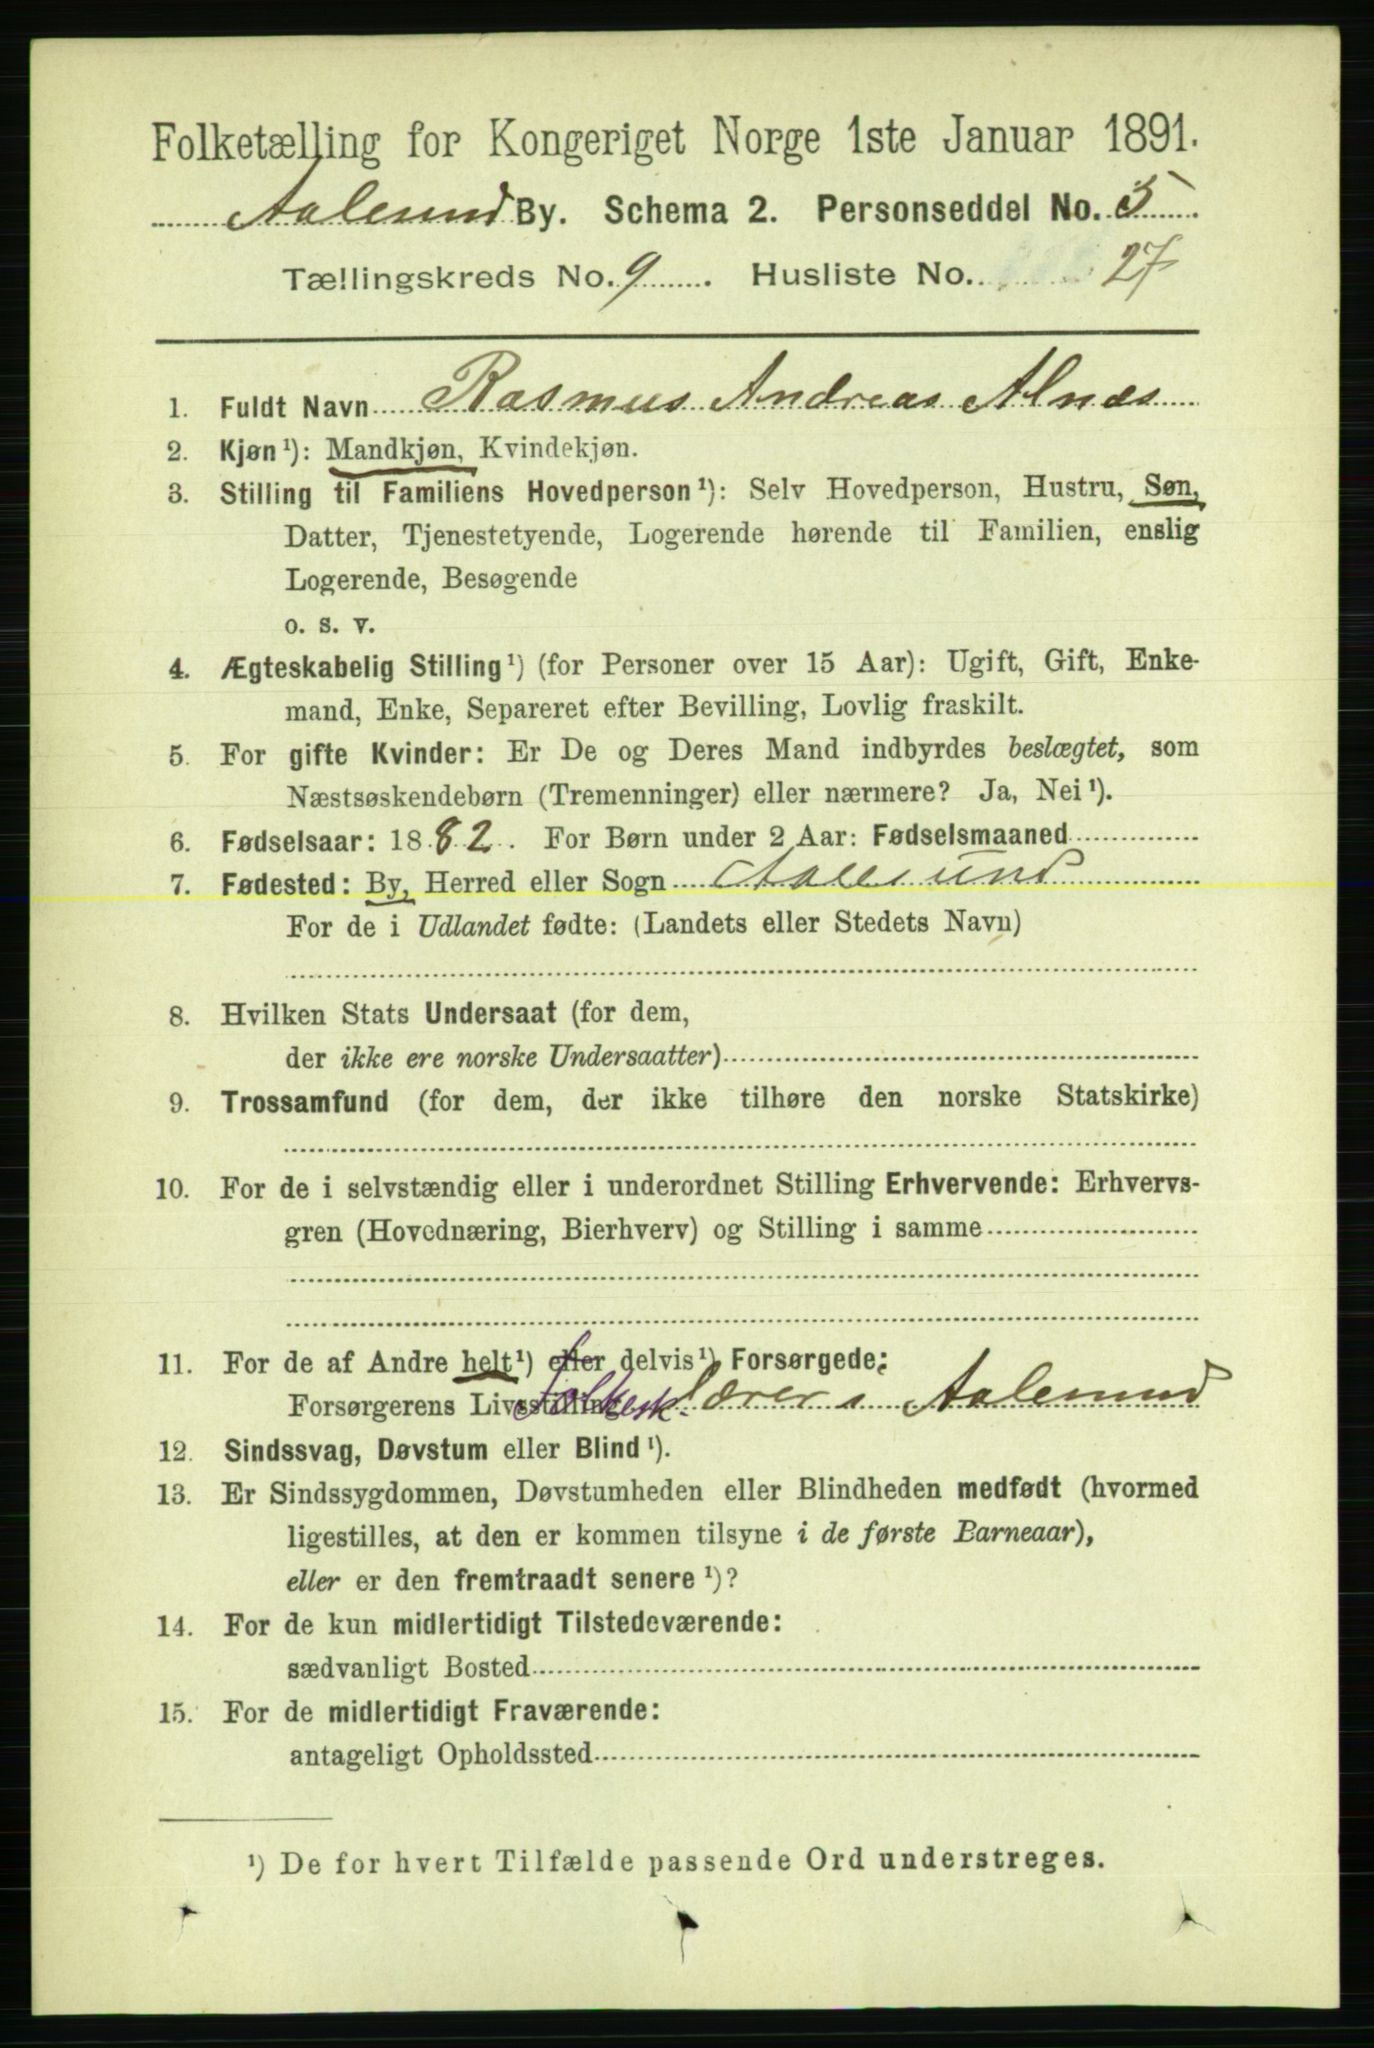 Folketælling for Kongeriget Norge 1ste Januar 1891.
Aalesund By. Schema 2. Personseddel No. 5
Tællingskreds No. 9. Husliste No. 27
1. Fuldt Navn Rasmus Andreas Alnæs
2. Kjøn¹): Mandkjøn, Kvindekjøn.
3. Stilling til Familiens Hovedperson¹): Selv Hovedperson, Hustru, Søn,
Datter, Tjenestetyende, Logerende hørende til Familien, enslig
Logerende, Besøgende
o. s. v.
4. Ægteskabelig Stilling¹) (for Personer over 15 Aar): Ugift, Gift, Enke-
mand, Enke, Separeret efter Bevilling, Lovlig fraskilt.
5. For gifte Kvinder: Er De og Deres Mand indbyrdes beslægtet, som
Næstsøskendebørn (Tremenninger) eller nærmere? Ja, Nei¹).
6. Fødselsaar: 1882. For Børn under 2 Aar: Fødselsmaaned
7. Fødested: By, Herred eller Sogn Aalesund
For de i Udlandet fødte: (Landets eller Stedets Navn)
8. Hvilken Stats Undersaat (for dem,
der ikke ere norske Undersaatter)
9. Trossamfund (for dem, der ikke tilhøre den norske Statskirke)
10. For de i selvstændig eller i underordnet Stilling Erhvervende: Erhvervs-
gren (Hovednæring, Bierhverv) og Stilling i samme
11. For de af Andre helt¹) eller delvis¹) Forsørgede:
Forsørgerens Livsstilling Folkesk. Lærer i Aalesund
12. Sindssvag, Døvstum eller Blind¹).
13. Er Sindssygdommen, Døvstumheden eller Blindheden medfødt (hvormed
ligestilles, at den er kommen tilsyne i de første Barneaar),
eller er den fremtraadt senere¹)?
14. For de kun midlertidigt Tilstedeværende:
sædvanligt Bosted
15. For de midlertidigt Fraværende:
antageligt Opholdssted
¹) De for hvert Tilfælde passende Ord understreges.